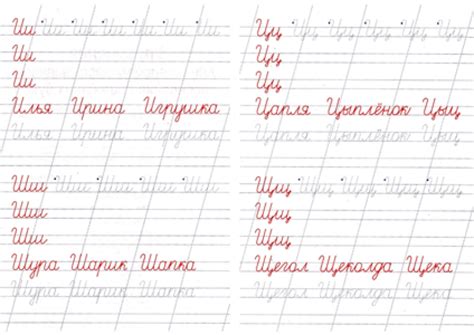 Ии Ии Ии Ии Ии Ии Ии
Ии
Ии
Илья Ирина Игрушка
Илья Ирина Игрушка
Шш Шш Шш Шш Шш
Шш
Шш
Шура Шарик Шапка
Шура Шарик Шапка
Цц Цц Цц Цц Цц Цц
Цц
Цц
Цапля Цыплёнок Цыц
Цапля Цыплёнок Цыц
Щщ Щщ Щщ Щщ Щщ
Щщ
Щщ
Щегол Щеколда Щека
Щегол Щеколда Щека